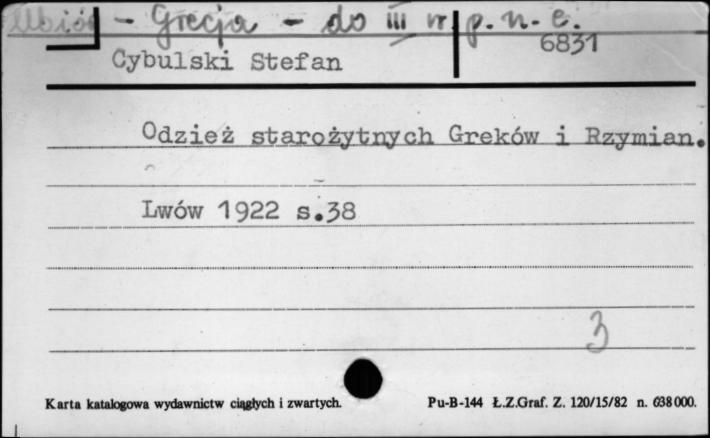 Ubiór - Grecja - do III w. p. n. e.
6831
Cybulski Stefan
Odzież starożytnych Greków i Rzymian.
Lwów 1922 s.38
3
Karta katalogowa wydawnictw ciągłych i zwartych.
Pu-B-144 Ł.Z.Graf. Z. 120/15/82 n. 638000.